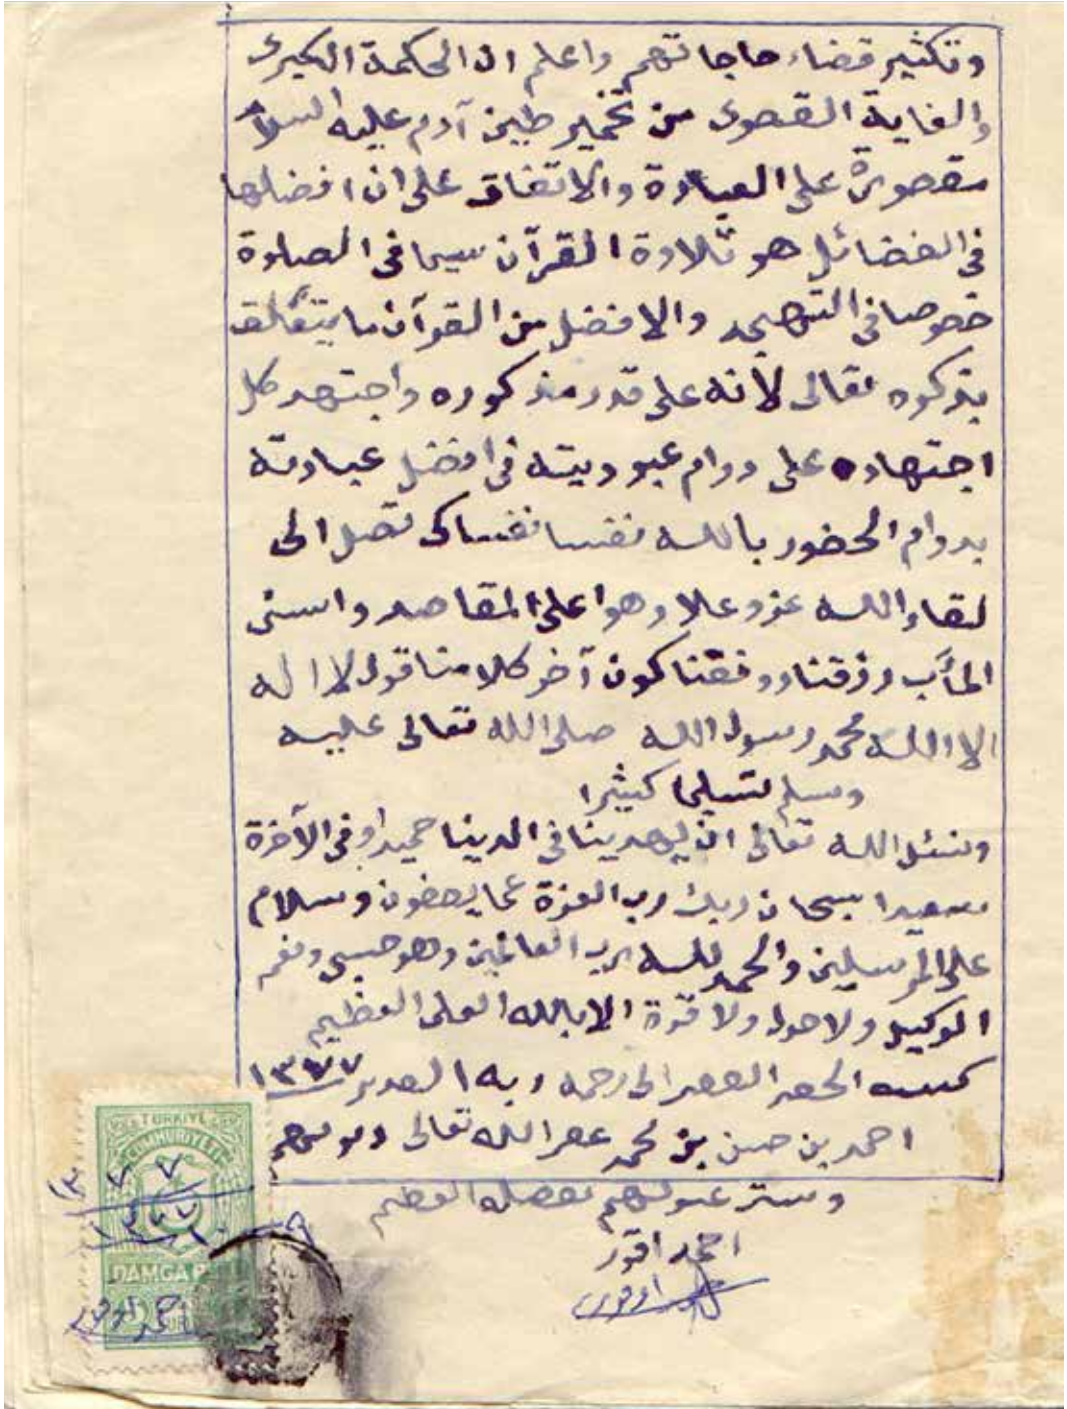 وتكثير قضاء حاجاتهم واعلم ان الحكمة الكبرى
والغاية القصوى من تخمير طين آدم عليه السلام
مقصورة على العبادة والاتفاق على ان افضلها
في الفضائل هو تلاوة القرآن سيما في الصلوة
خصوصا في التهجد والافضل من القرآن ما يتعلق
بذكره تعالى لأنه على قدر مذكوره واجتهد كل
اجتهاده على دوام عبوديته في افضل عبادته
بدوام الحضور بالله نفسا نفسا كى تصل الى
لقاء الله عز وعلا وهو اعلى المقاصد واسنى
المأب رزقنا ووفقنا كون آخر كلامنا قول لا اله
الا الله محمد رسول الله صلى الله تعالى عليه
وسلم تسليما كثيرا
ونسئل الله تعالى ان يهدينا في الدينا حميدا وفي الآخرة
سعيدا سبحان ربك رب العزة عما يصفون وسلام
على المرسلين والحمد لله رب العالمين وهو حسبى ونعم
الوكيل ولا حول ولا قوة الا بالله العلى العظيم
كتبه الحقير الفقير الى رحمة ربه القدير ١٣٧٧
احمد بن حسن بن محمد غفر الله تعالى ذنوبهم
وستر عيوبهم بفضله العظيم
احمد اقور
TÜRKİYE
CUMHURİYETİ
١٣٧٧
DAMGA P